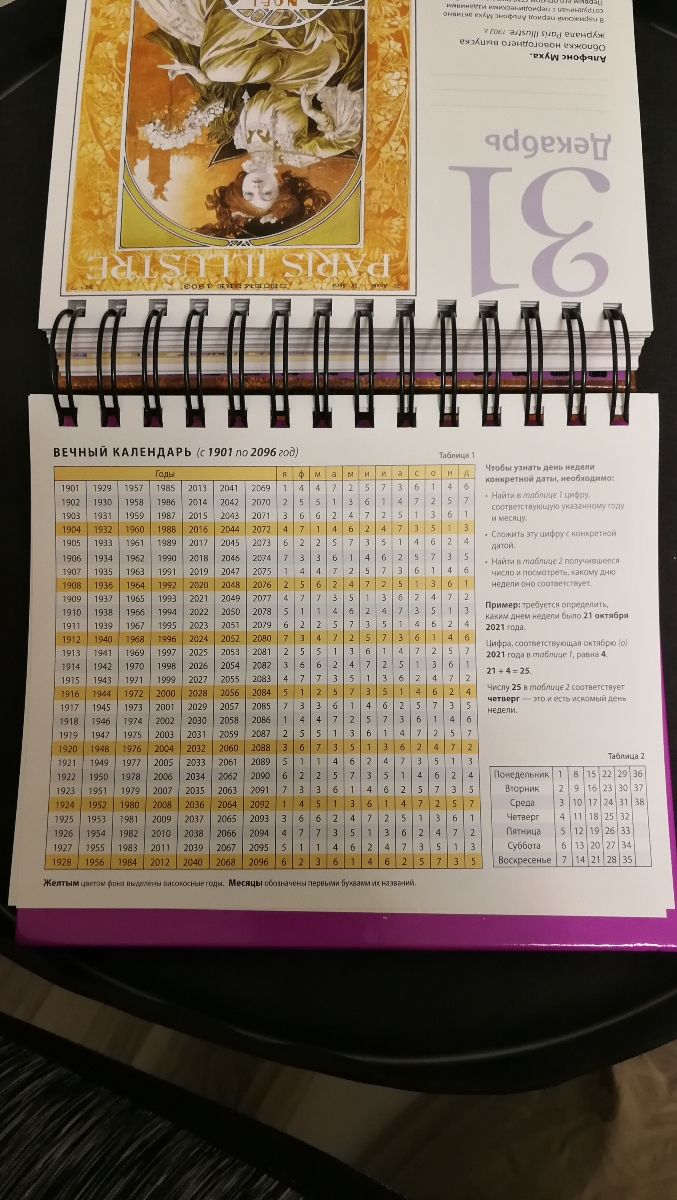 NOËL
PARIS ILLUSTRE
DECEMBRE 1903
31
Декабрь
Альфонс Муха.
Обложка новогоднего выпуска
журнала Paris Illustre. 1902 г.
В парижский период Альфонс Муха активно
сотрудничал с периодическими изданиями.
ВЕЧНЫЙ КАЛЕНДАРЬ (с 1901 по 2096 год)
Таблица 1
Годы я ф м а м и и а с о н д
1901 1929 1957 1985 2013 2041 2069 1 4 4 7 2 5 7 3 6 1 4 6
1902 1930 1958 1986 2014 2042 2070 2 5 5 1 3 6 1 4 7 2 5 7
1903 1931 1959 1987 2015 2043 2071 3 6 6 2 4 7 2 5 1 3 6 1
1904 1932 1960 1988 2016 2044 2072 4 7 1 4 6 2 4 7 3 5 1 3
1905 1933 1961 1989 2017 2045 2073 6 2 2 5 7 3 5 1 4 6 2 4
1906 1934 1962 1990 2018 2046 2074 7 3 3 6 1 4 6 2 5 7 3 5
1907 1935 1963 1991 2019 2047 2075 1 4 4 7 2 5 7 3 6 1 4 6
1908 1936 1964 1992 2020 2048 2076 2 5 6 2 4 7 2 5 1 3 6 1
1909 1937 1965 1993 2021 2049 2077 4 7 7 3 5 1 3 6 2 4 7 2
1910 1938 1966 1994 2022 2050 2078 5 1 1 4 6 2 4 7 3 5 1 3
1911 1939 1967 1995 2023 2051 2079 6 2 2 5 7 3 5 1 4 6 2 4
1912 1940 1968 1996 2024 2052 2080 7 3 4 7 2 5 7 3 6 1 4 6
1913 1941 1969 1997 2025 2053 2081 2 5 5 1 3 6 1 4 7 2 5 7
1914 1942 1970 1998 2026 2054 2082 3 6 6 2 4 7 2 5 1 3 6 1
1915 1943 1971 1999 2027 2055 2083 4 7 7 3 5 1 3 6 2 4 7 2
1916 1944 1972 2000 2028 2056 2084 5 1 2 5 7 3 5 1 4 6 2 4
1917 1945 1973 2001 2029 2057 2085 7 3 3 6 1 4 6 2 5 7 3 5
1918 1946 1974 2002 2030 2058 2086 1 4 4 7 2 5 7 3 6 1 4 6
1919 1947 1975 2003 2031 2059 2087 2 5 5 1 3 6 1 4 7 2 5 7
1920 1948 1976 2004 2032 2060 2088 3 6 7 3 5 1 3 6 2 4 7 2
1921 1949 1977 2005 2033 2061 2089 5 1 1 4 6 2 4 7 3 5 1 3
1922 1950 1978 2006 2034 2062 2090 6 2 2 5 7 3 5 1 4 6 2 4
1923 1951 1979 2007 2035 2063 2091 7 3 3 6 1 4 6 2 5 7 3 5
1924 1952 1980 2008 2036 2064 2092 1 4 5 1 3 6 1 4 7 2 5 7
1925 1953 1981 2009 2037 2065 2093 3 6 6 2 4 7 2 5 1 3 6 1
1926 1954 1982 2010 2038 2066 2094 4 7 7 3 5 1 3 6 2 4 7 2
1927 1955 1983 2011 2039 2067 2095 5 1 1 4 6 2 4 7 3 5 1 3
1928 1956 1984 2012 2040 2068 2096 6 2 3 6 1 4 6 2 5 7 3 5
Желтым цветом фона выделены високосные годы. Месяцы обозначены первыми буквами их названий.
Чтобы узнать день недели
конкретной даты, необходимо:
• Найти в таблице 1 цифру,
соответствующую указанному году
и месяцу.
• Сложить эту цифру с конкретной
датой.
• Найти в таблице 2 получившееся
число и посмотреть, какому дню
недели оно соответствует.
Пример: требуется определить,
каким днем недели было 21 октября
2021 года.
Цифра, соответствующая октябрю (о)
2021 года в таблице 1, равна 4.
21 + 4 = 25.
Числу 25 в таблице 2 соответствует
четверг — это и есть искомый день
недели.
Таблица 2
Понедельник 1 8 15 22 29 36
Вторник 2 9 16 23 30 37
Среда 3 10 17 24 31 38
Четверг 4 11 18 25 32
Пятница 5 12 19 26 33
Суббота 6 13 20 27 34
Воскресенье 7 14 21 28 35